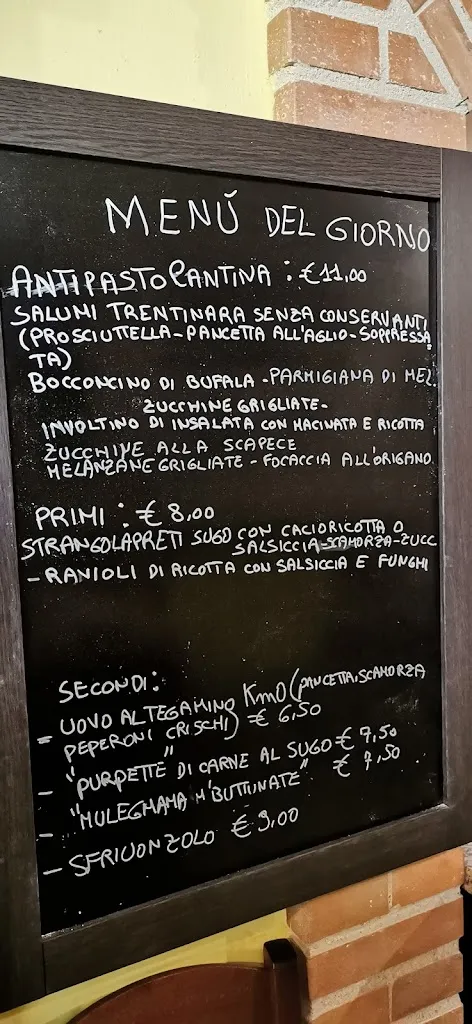 MENÚ DEL GIORNO
ANTIPASTO CANTINA : € 11,00
SALUMI TRENTINARA SENZA CONSERVANTI
(PROSCIUTTELLA-PANCETTA ALL'AGLIO-SOPRESSA
TA)
BOCCONCINO DI BUFALA - PARMIGIANA DI MEL.
ZUCCHINE GRIGLIATE-
INVOLTINO DI INSALATA CON MACINATA E RICOTTA
ZUCCHINE ALLA SCAPECE
MELANZANE GRIGLIATE - FOCACCIA ALL'ORIGANO
PRIMI : € 8,00
STRANGOLAPRETI SUGO CON CACIORICOTTA O
SALSICCIA-SCAMORZA-ZUCC
- RANIOLI DI RICOTTA CON SALSICCIA E FUNGHI
SECONDI:
- UOVO AL TEGAMINO Km0 (PANCETTA, SCAMORZA
PEPERONI CRISCHI) € 6,50
- "PURPETTE" DI CARNE AL SUGO € 7,50
- "MULEGNAMA M'BUTTUNATE" € 7,50
- SFRIUONZOLO € 9,00